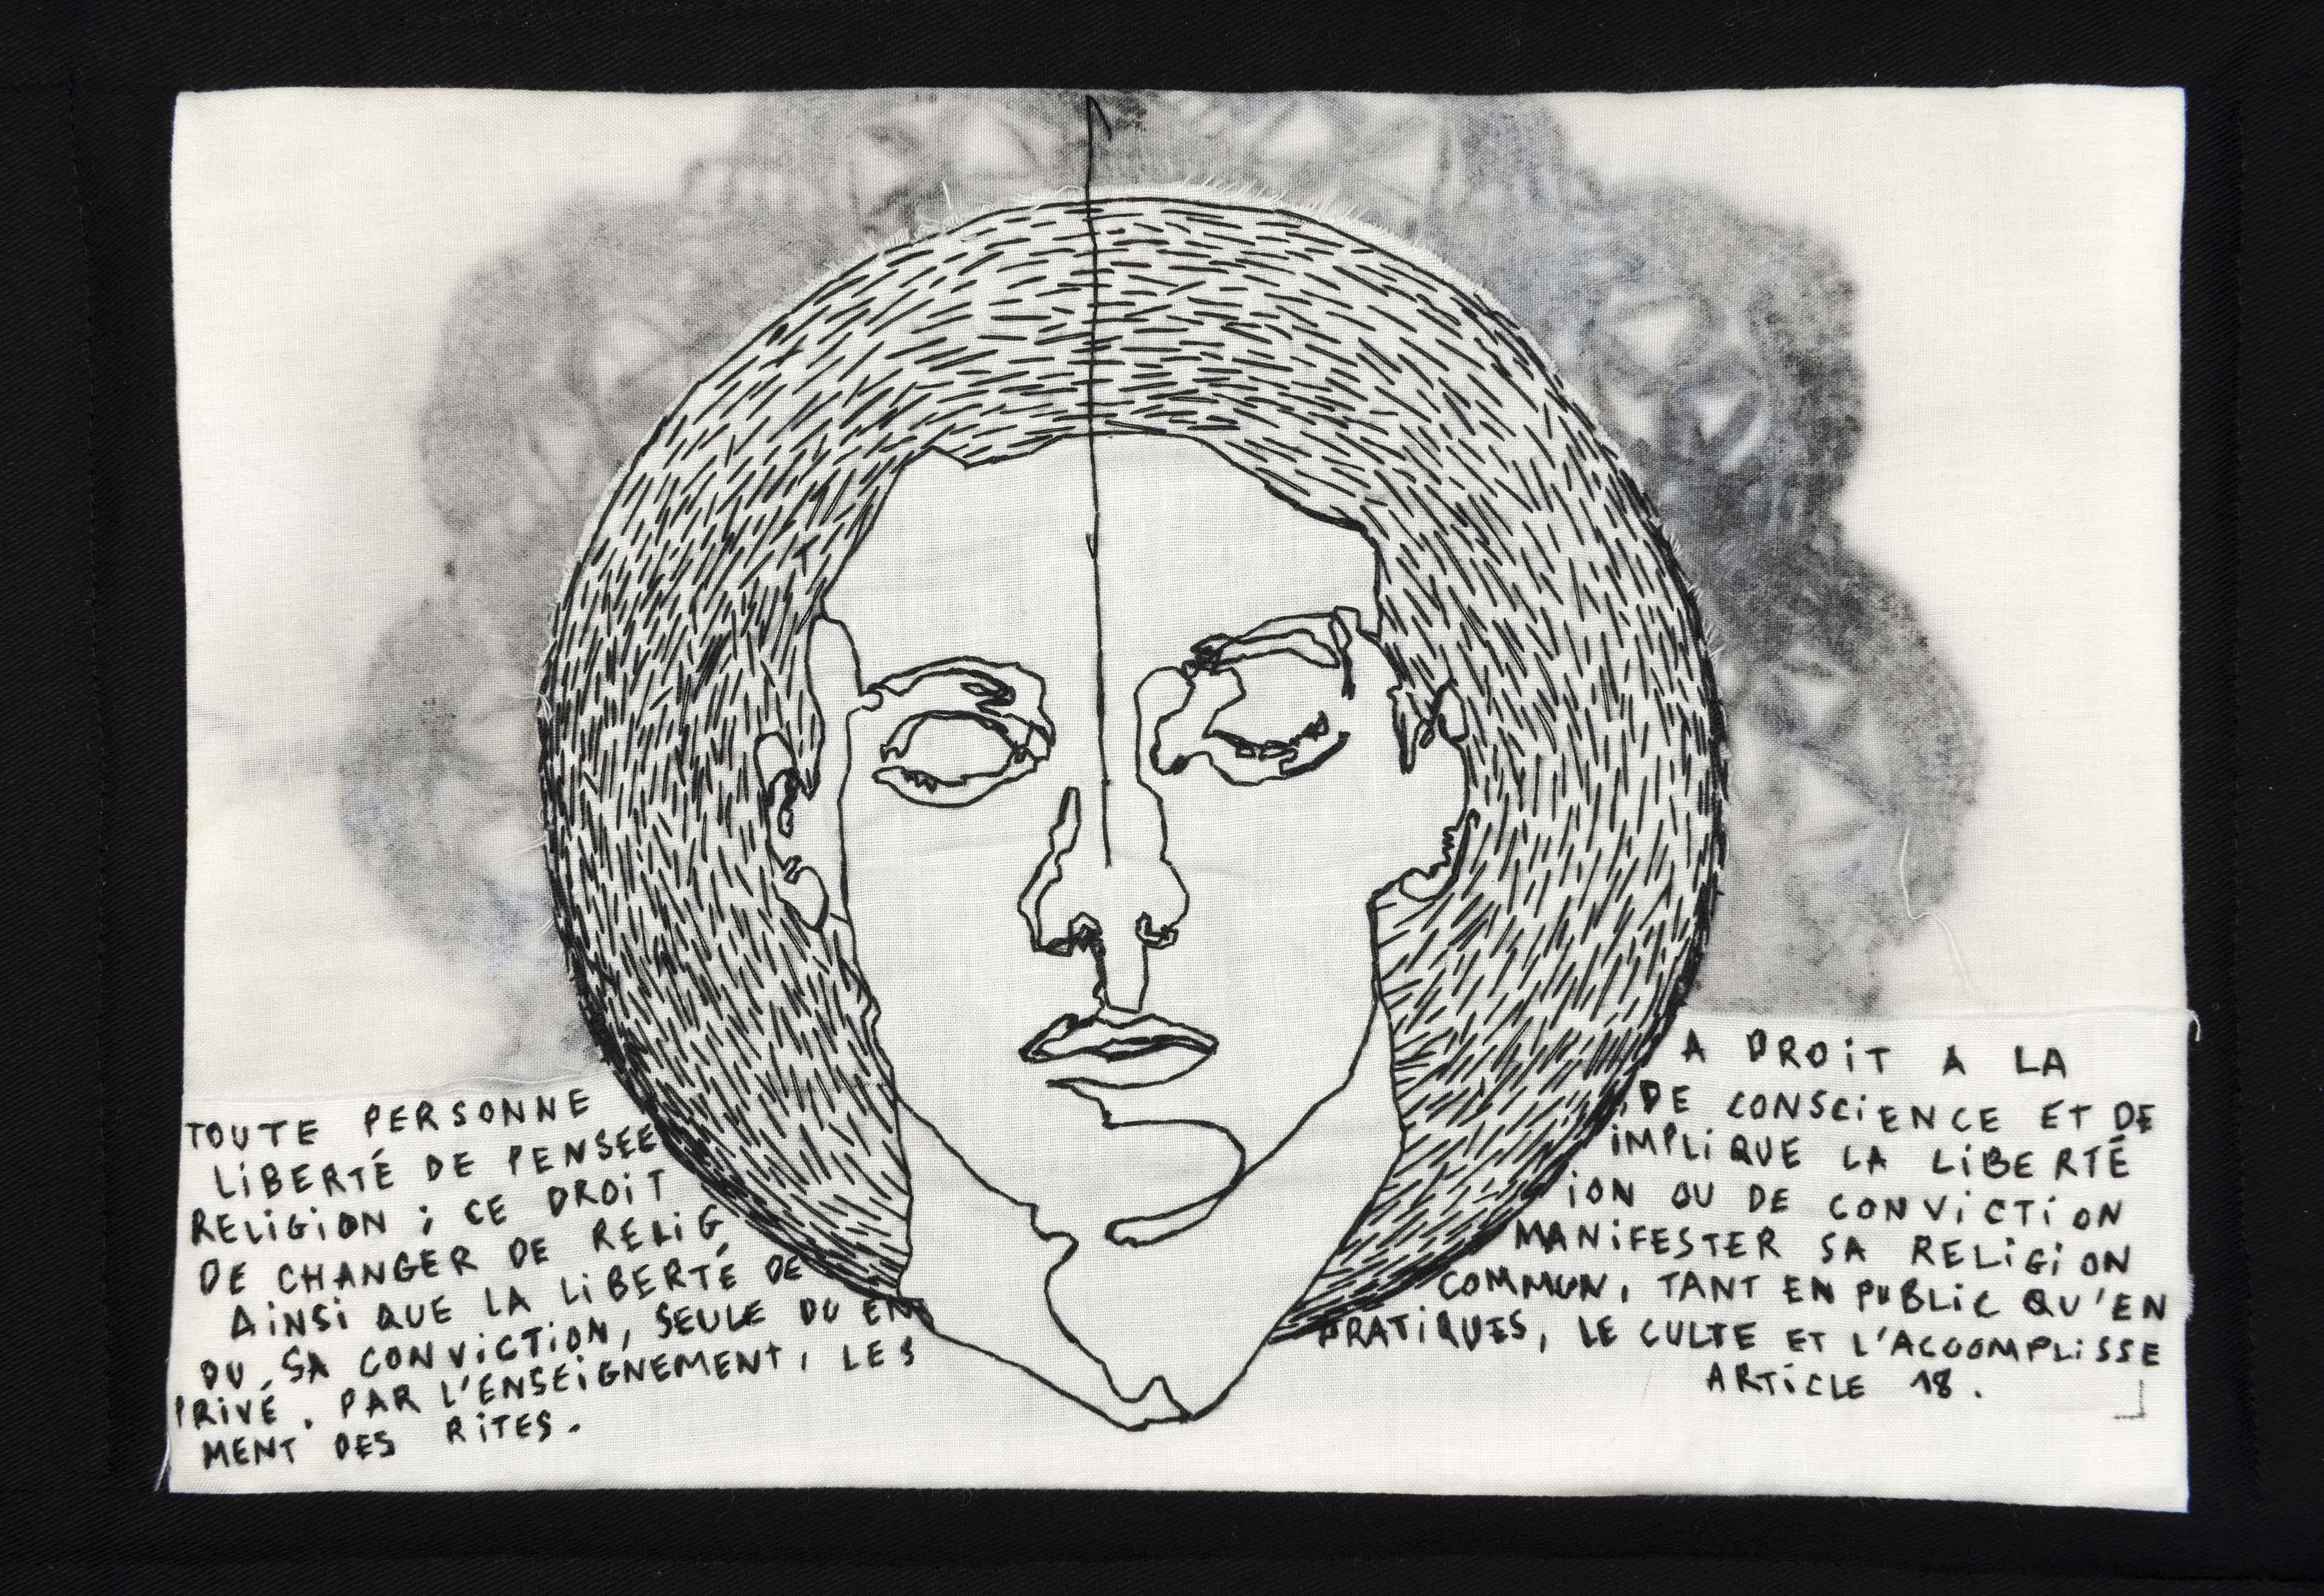 TOUTE PERSONNE A DROIT A LA
LIBERTÉ DE PENSEE, DE CONSCIENCE ET DE
RELIGION ; CE DROIT IMPLIQUE LA LIBERTÉ
DE CHANGER DE RELIGION OU DE CONVICTION
AINSI QUE LA LIBERTÉ DE MANIFESTER SA RELIGION
OU SA CONVICTION, SEULE OU EN COMMUN, TANT EN PUBLIC QU'EN
PRIVÉ, PAR L'ENSEIGNEMENT, LES PRATIQUES, LE CULTE ET L'ACCOMPLISSE
MENT DES RITES. ARTICLE 18.